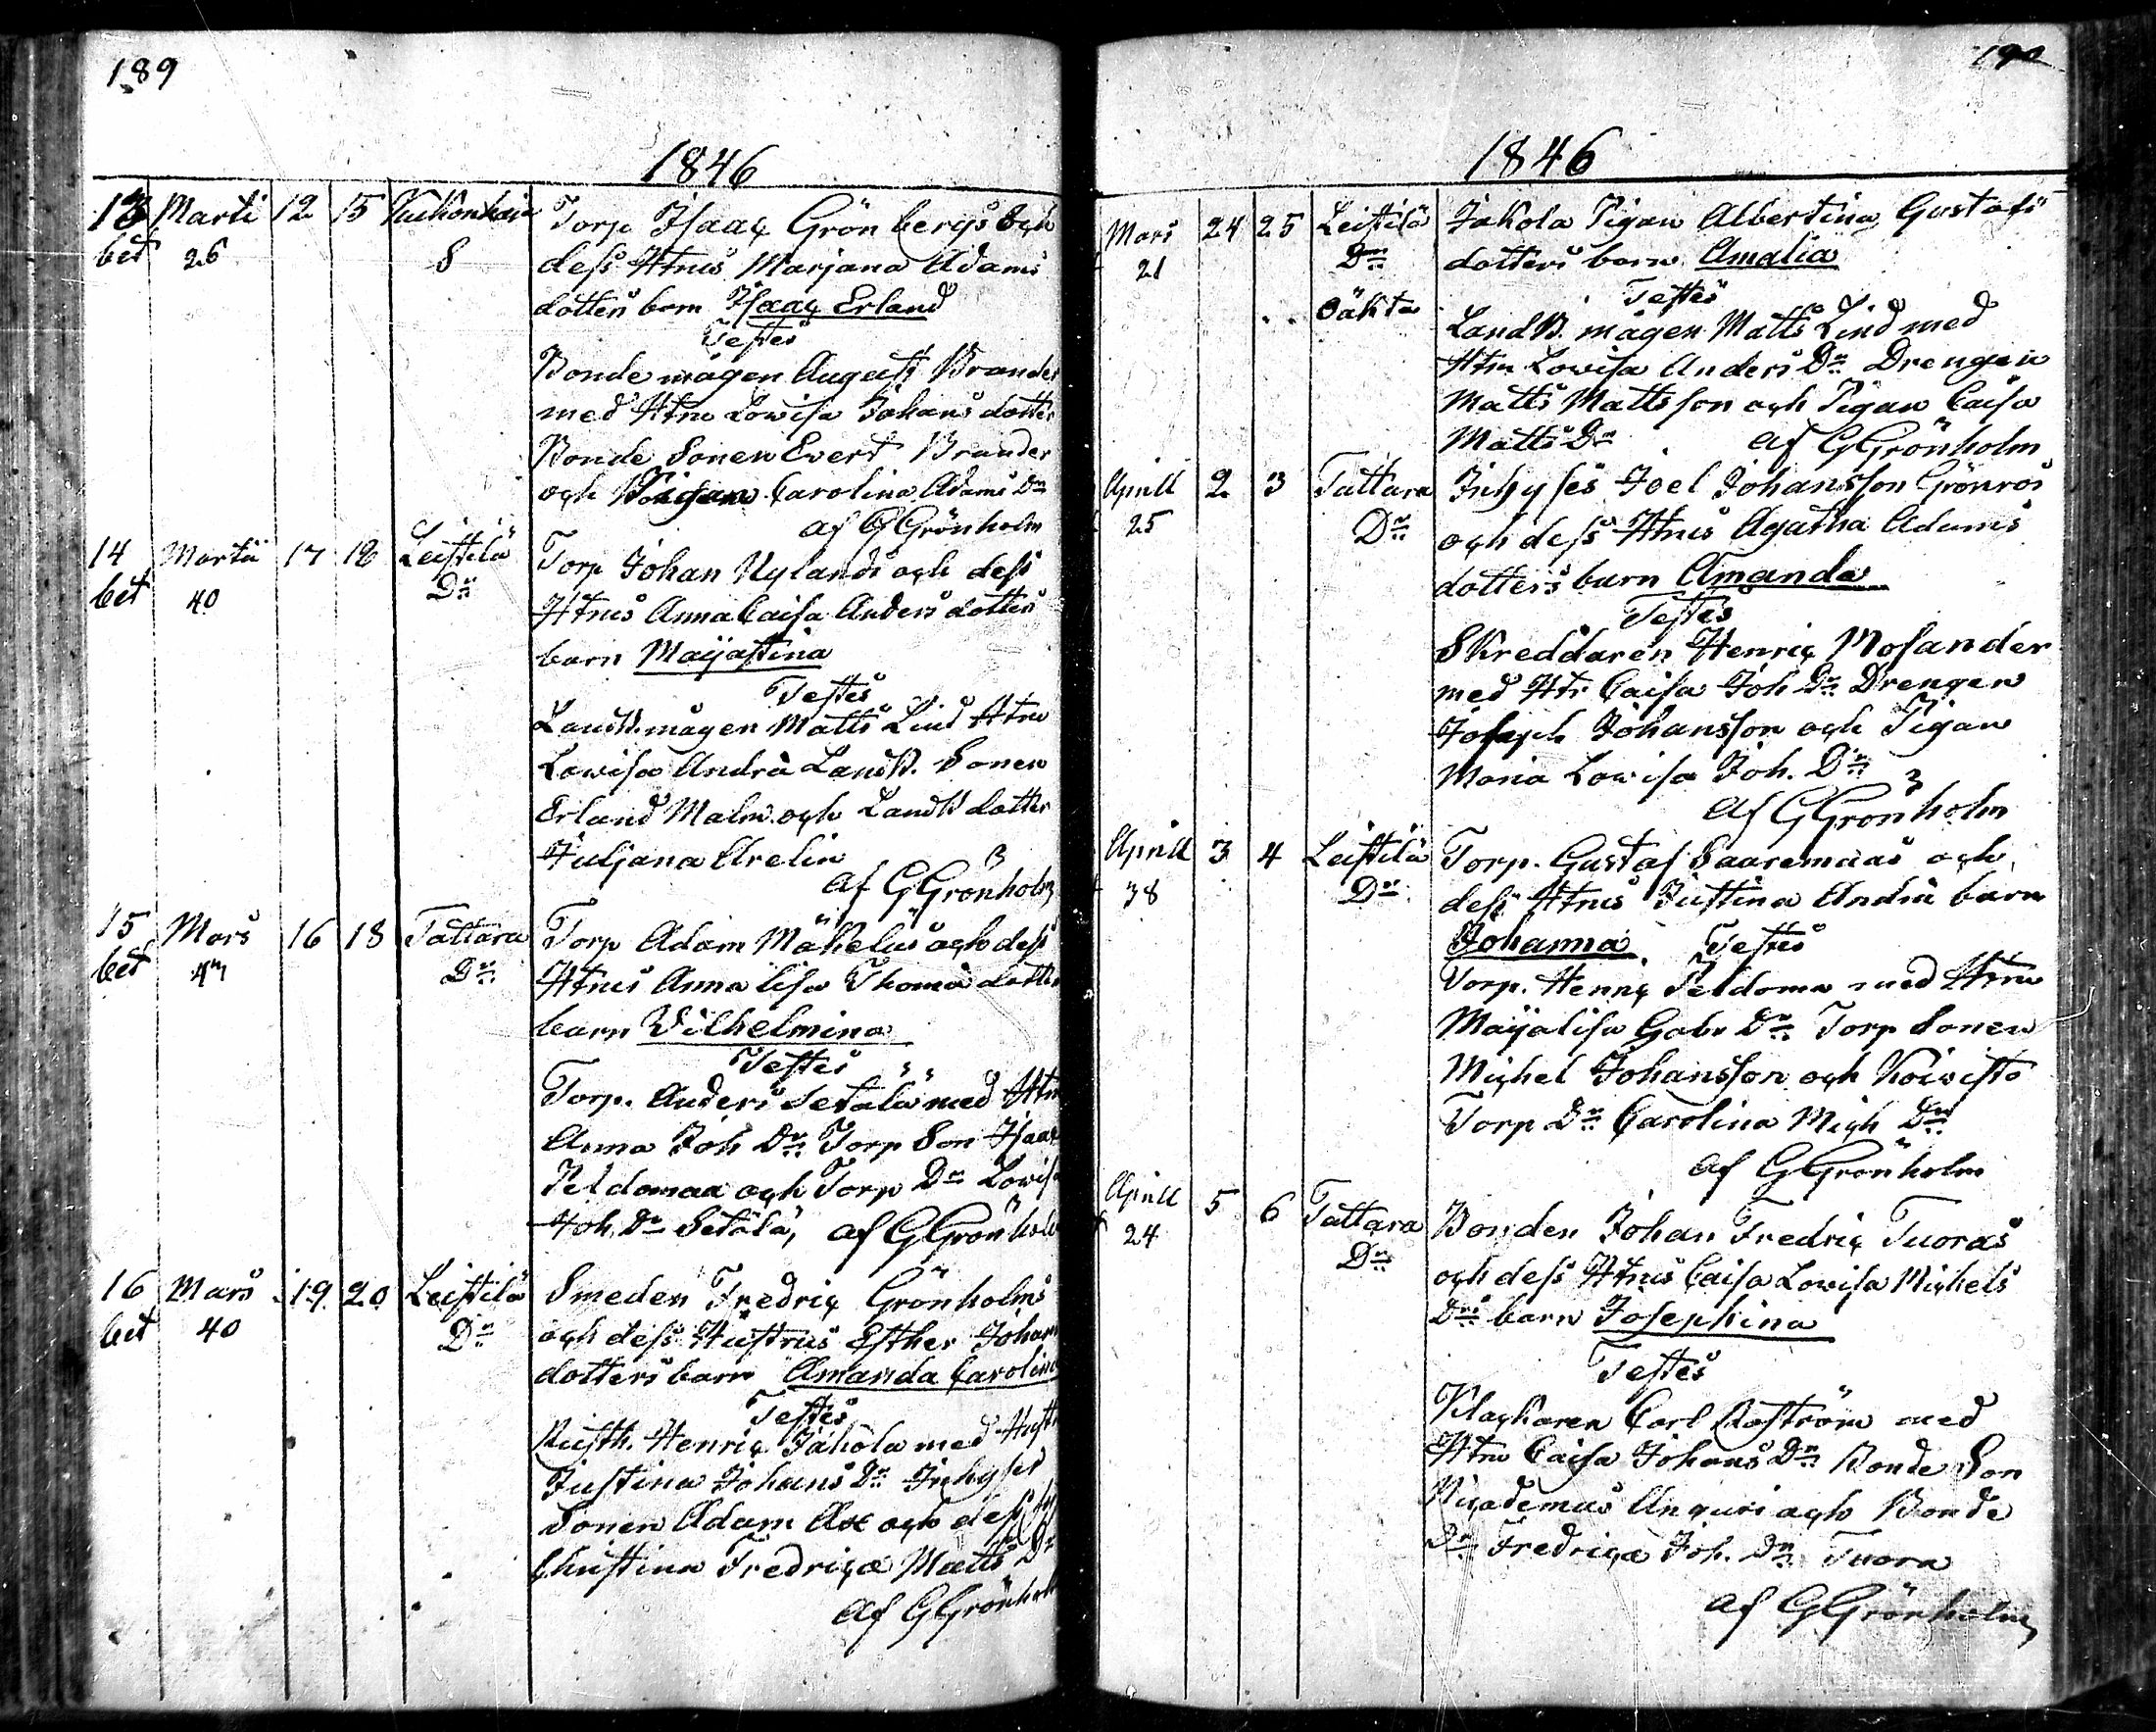 189
1846
13 Marti 12 15 Torp Isaac Grönbergs och
bet 26 S dess Htrus Marjana Adams
dotters barn Isaac Erland
Testes
Bonde mågen August Brander
med Htru Lowisa Johans dotter
Bonde Sonen Evert Brander
och Pigan Carolina Adams Dr
af G Grönholm
14 Martii 17 18 Leistilä Torp Johan Nylands och dess
bet 40 Dr Htrus Anna Caisa Anders dotters
barn Maijastina
Testes
Landb. mågen Matts Lind Htru
Lowisa Andrä Landb. Sonen
Erland Malm och Landb dotter
Juljana Arelin
af G Grönholm
15 Mars 16 18 Tattara Torp Adam Mäkeläs och dess
bet Dr Htrus Anna Lisa Thomä dotters
barn Wilhelmina
Testes
Torp. Anders Setälä med Htru
Anna Joh Dr Torp Son Isaac
Peldomaa och Torp Dr Lowisa
Joh. Dr Setälä, af G Grönholm
16 Mars 19 20 Leistilä Smeden Fredric Grönholms
bet 40 Dr och dess Hustrus Esther Johans
dotters barn Amanda Carolina
Testes
Rusth. Henric Jakola med Hustr
Justina Johans Dr Inhyses
Sonen Adam Ax och dess
Christina Fredrica Matts Dr
af G Grönholm
190
1846
Mars 24 25 Leistilä Jakola Pigan Albertina Gustafs
21 Dr dotters barn Amalia
Oäkta Testes
Landb. mågen Matts Lind med
Htru Lowisa Anders Dr Drengen
Matts Mattsson och Pigan Caisa
Matts Dr af G Grönholm
Aprill 2 3 Tattara Inhyses Joel Johansson Grönros
25 Dr och dess Htrus Agatha Adams
dotters barn Amanda
Testes
Skreddaren Henric Mosander
med Htr Caisa Joh Dr Drengen
Joseph Johansson och Pigan
Maria Lowisa Joh. Dr
af G Grönholm
Aprill 3 4 Leistilä Torp. Gustaf Saaremaas och
38 Dr dess Htrus Justina Andrä barn
Johanna Testes
Torp. Henric Peldoma med Htru
Maijalisa Gabr Dr Torp Sonen
Michel Johansson och Koiwisto
Torp Dr Carolina Mich Dr
af G Grönholm
Aprill 5 6 Tattara Bonden Johan Fredric Tuoras
24 Dr och dess Htrus Caisa Lowisa Michels
Drs barn Josephina
Testes
Klockaren Carl Roström med
Htru Caisa Johans Dr Bonde Son
Nicodemus Anguri och Bonde
Dr Fredrica Joh. Dr Tuora
af G Grönholm